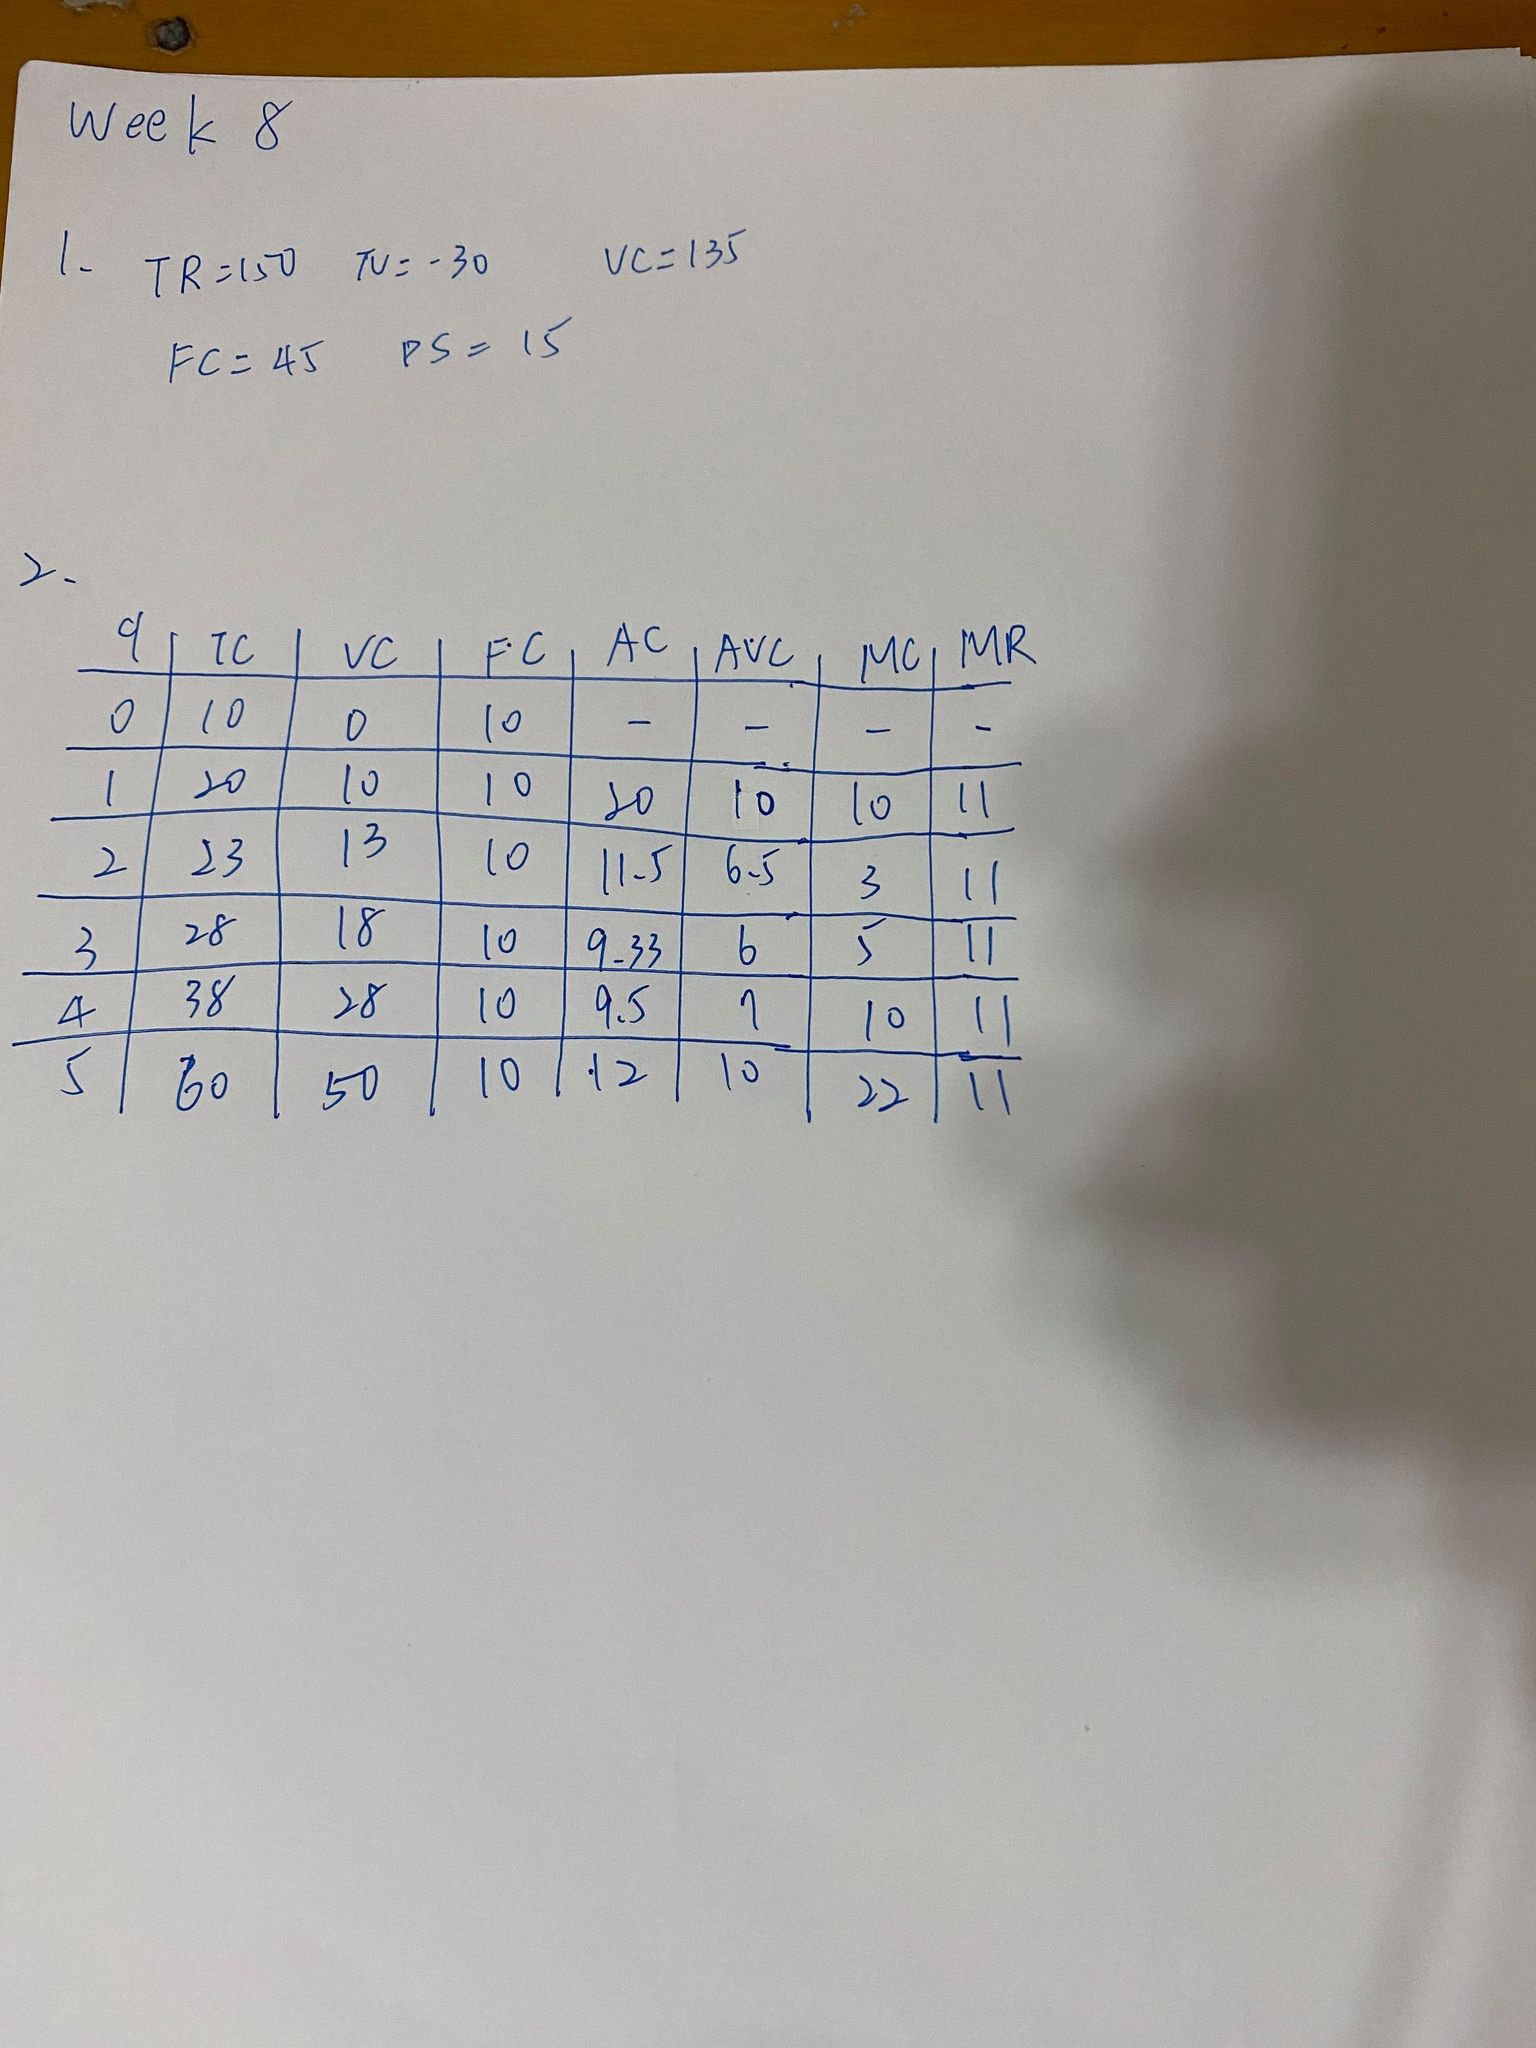 Week 8
1. TR=150 TV=-30 VC=135
FC=45 PS=15
2.
q TC VC F.C AC AVC MC MR
0 10 0 10 - - - -
1 20 10 10 20 10 10 11
2 23 13 10 11.5 6.5 3 11
3 28 18 10 9.33 6 5 11
4 38 28 10 9.5 7 10 11
5 60 50 10 12 10 22 11